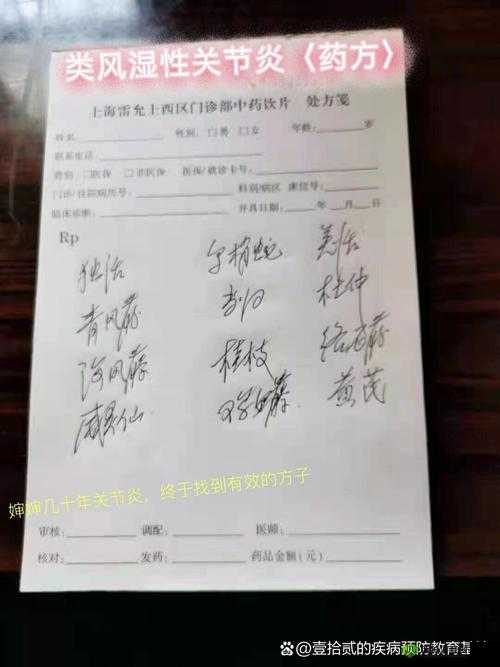 类风湿性关节炎〈药方〉
上海雷允上西区门诊部中药饮片 处方笺
姓名 性别: □男 □女 年龄: 岁
联系电话
费别 □医保 □非医保 医保/就诊卡号:
门诊/住院病历号: 科别/病区 床位号:
临床诊断: 开具日期: 年 月 日
Rp
独活 乌梢蛇 羌活
青风藤 当归 杜仲
海风藤 桂枝 络石藤
威灵仙 藤 黄芪
婶婶几十年关节炎，终于找到有效的方子
审核: 调配: 医师:
核对: 发药: 药品金额(元)
头条 @壹拾贰的疾病预防教育基